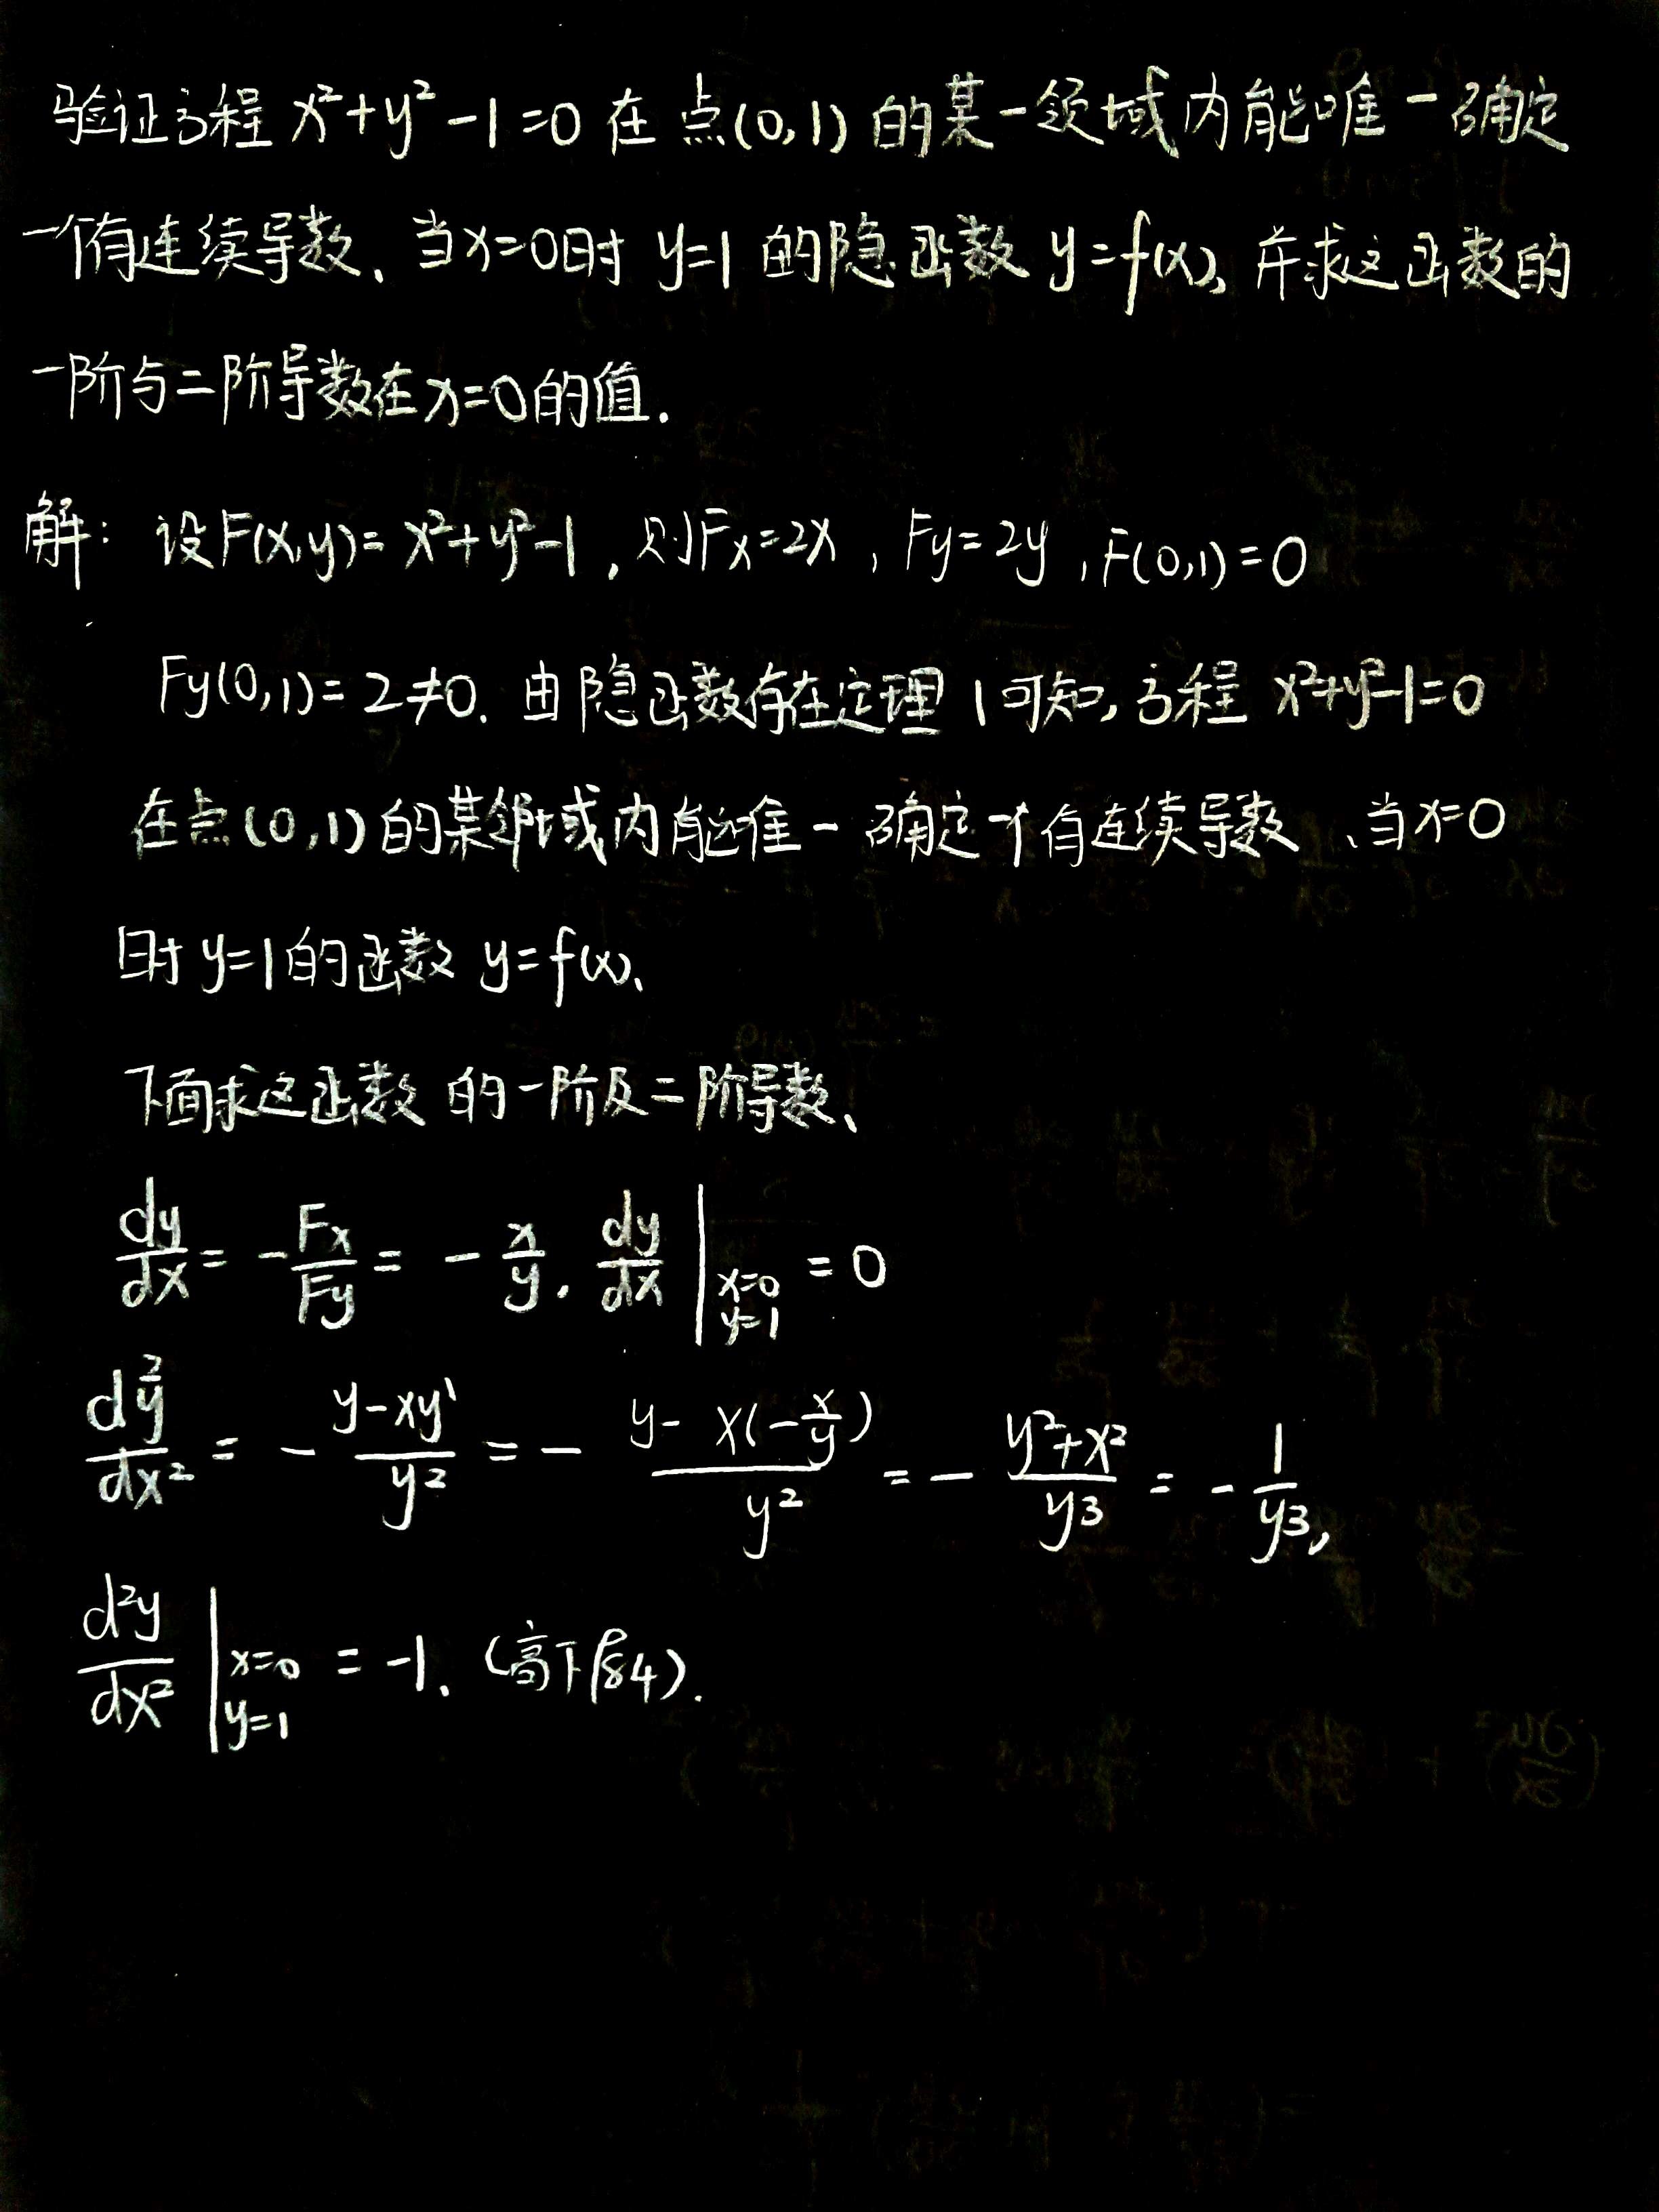 验证方程 x²+y²-1=0 在点(0,1)的某一领域内能唯一确定
一个有连续导数、当x=0时 y=1 的隐函数 y=f(x), 并求这函数的
一阶与二阶导数在x=0的值.
解: 设F(x,y)= x²+y²-1, 则Fx=2x, Fy=2y, F(0,1)=0
Fy(0,1)=2≠0. 由隐函数存在定理1可知, 方程 x²+y²-1=0
在点(0,1)的某邻域内能唯一确定一个有连续导数、当x=0
时 y=1的函数 y=f(x).
下面求这函数的一阶及二阶导数、
dy/dx = -Fx/Fy = -x/y. dy/dx | x=0 y=1 = 0
d²y/dx² = - (y-xy')/y² = - (y-x(-x/y))/y² = - (y²+x²)/y³ = - 1/y³,
d²y/dx² | x=0 y=1 = -1. (高下P84).